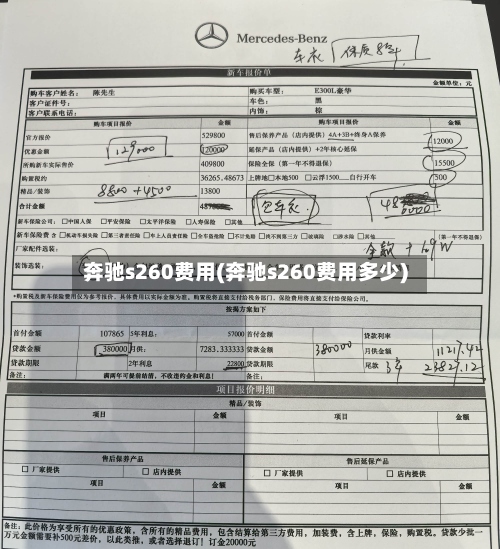 Mercedes-Benz
车衣 保质8年
新车报价单
金额单位：元
购车客户姓名： 陈先生 购买车型： E300L豪华
客户证件号： 车色： 黑
客户联系电话： 内饰： 棕
购车项目报价 金额 购车项目报价 金额
官方报价 529800 售后保养产品（店内提供）4A+3B+终身A保养 12000
优惠金额 129000 120000 延保产品（店内提供）+2年核心延保
所购新车实际售价 409800 保险全保（第一年不得退保） 15500
购置税约 36265.48673 上牌地□本地500 □云浮1500__自行开车 500
精品/装饰 8800+4500 13800
合计金额 包车衣
新车保险公司： □中国人保 □平安保险 □太平洋保险 □人寿保险 □其他
厂家配件选装： 全款+1.9W
装饰选装：
奔驰s260费用(奔驰s260费用多少)
*购置税及新车保险费用仅为参考报价，具体费用以实际金额为准。购置税将直接支付给税务部门，保险费用将直接支付给保险公司。
按揭方案如下
首付金额 107865 5年利息： 57000 首付金额 贷款利率
贷款金额 380000 月供： 7283.333333 贷款金额 380000 月供金额 11217.42
贷款期限 2年利息 22800 贷款期限 尾款 3年 23827.12
备注： 满两年可提前结清，不收违约金和利息！ 备注：
项目报价明细
精品/装饰
项目 金额 项目 金额
售后保养产品 售后延保产品
□ 厂家提供 □ 店内提供 □ 厂家提供 □ 店内提供
项目 金额 项目 金额
备注：此价格为享受所有的优惠政策，含所有的精品费用，包含结算给第三方费用，加装费，含上牌，保险，购置税。贷款少批一
万元金额需要补500元差价，以此类推，或者选择退订！订金20000元